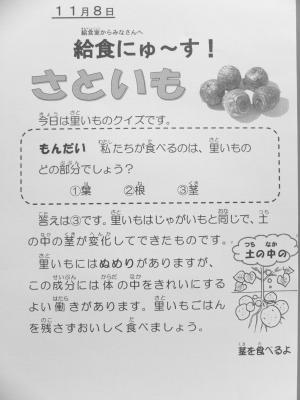 11月8日
給食室からみなさんへ
給食にゅ～す！
さといも
今日は里いものクイズです。
もんだい　私たちが食べるのは、里いもの
どの部分でしょう？
①葉　②根　③茎
答えは③です。里いもはじゃがいもと同じで、土
の中の茎が変化してできたものです。
里いもにはぬめりがありますが、
この成分には体の中をきれいにする
よい働きがあります。里いもごはん
を残さずおいしく食べましょう。
土の中の
茎を食べるよ